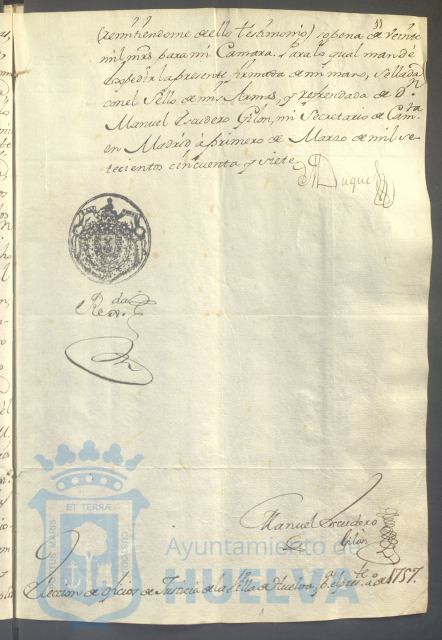 (remitiendome de ello testimonio) so pena de veinte
mil mrs para mi Camara. Para lo qual mandè
expedir la presente firmada de mi mano, sellada
con el Sello de mis Armas, y refrendada de Dn
Manuel Escudero Gilon, mi Secretario de Camra
en Madrid à primero de Marzo de mil se-
tecientos cinquenta y siete
El Duque
Regda
Manuel Escudero
Gilon
ET TERRAE
CUSTODIA
PORTUS MARIS
Ayuntamiento de
HUELVA
Eleccion de oficios de Justicia de la Villa de Huelva, pa el preste año de 1757.